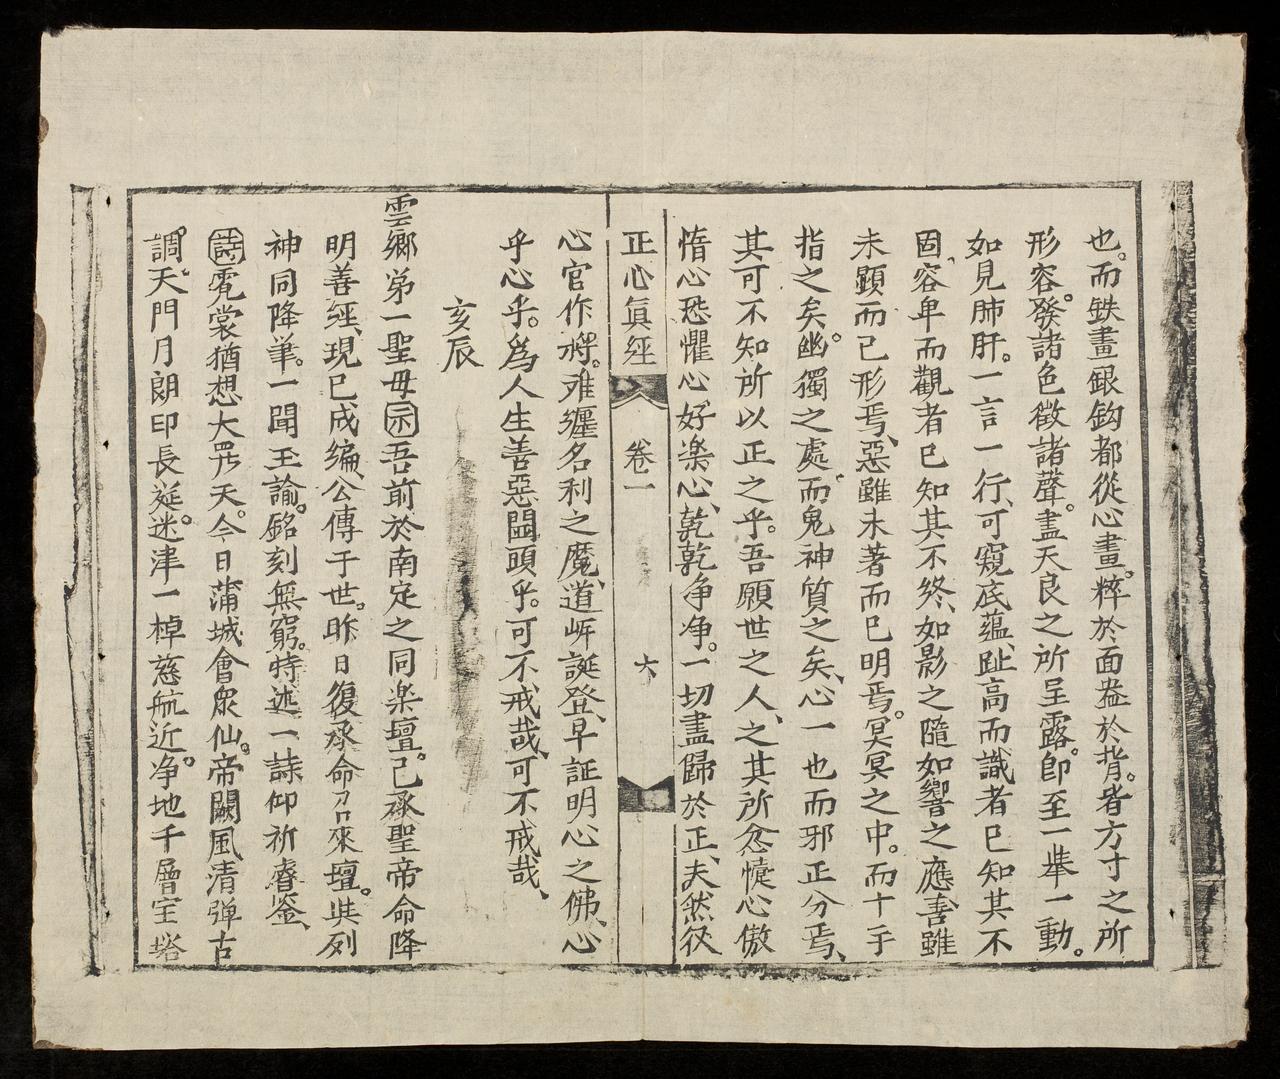 也。而鉄畫銀鈎都從心畫。粹於面盎於背。皆方寸之所
形容。發諸色徵諸聲。盡天良之所呈露。卽至一𦦙一動。
如見肺肝。一言一行、可窺底蘊、趾高而識者已知其不
固、容卑而觀者已知其不終、如影之隨如響之應、善雖
未顕而已形焉、惡雖未著而已明焉。冥冥之中。而十手
指之矣。幽獨之處、而鬼神質之矣、心一也而邪正分焉、
其可不知所以正之乎。吾願世之人、之其所忿懥心傲
惰心恐懼心、好楽心、乾乾净净。一切盡歸於正、夫然後
正心眞經 卷二 六
心官作將。难纒名利之魔、道岸誕登、早証明心之佛、心
乎心乎。爲人生善惡関頭乎。可不戒哉、可不戒哉、
亥辰
雲鄉第一聖母示吾前於南定之同楽壇。已承聖帝命降
明善經、現已成編、公傳于世。昨日復承命召來壇。與列
神同降筆。一聞玉諭。銘刻無窮。特述一詩仰祈睿鑒、
詩霓裳猶想大羅天。今日蒲城會衆仙。帝闕風清弹古
調。天門月朗印長筵。迷津一棹慈航近。净地千層宝塔